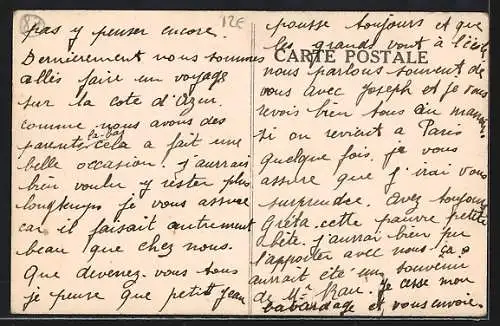 12E
pas y penser encore.
Dernièrement nous sommes
allés faire un voyage
sur la cote d'Azur.
comme nous avons des
parents la-bas cela a fait une
belle occasion. j'aurrais
bien voulu y rester plus
longtemps je vous assure
car il faisait autrement
beau que chez nous.
Que devenez-vous tous
je pense que petit Jean
pousse toujours et que
les grands vont à l'école
CARTE POSTALE
nous parlons souvent de
vous avec Joseph et je vous
revois bien tous au
si on revient à Paris
quelque fois. je vous
assure que j'irai vous
surprendre. avez toujours
Gréta. cette pauvre petite
bête. j'aurrai bien pu
l'apporter avec nous. ça
aurrait été un souvenir
de Mr je cesse mon
babardage et vous envoie